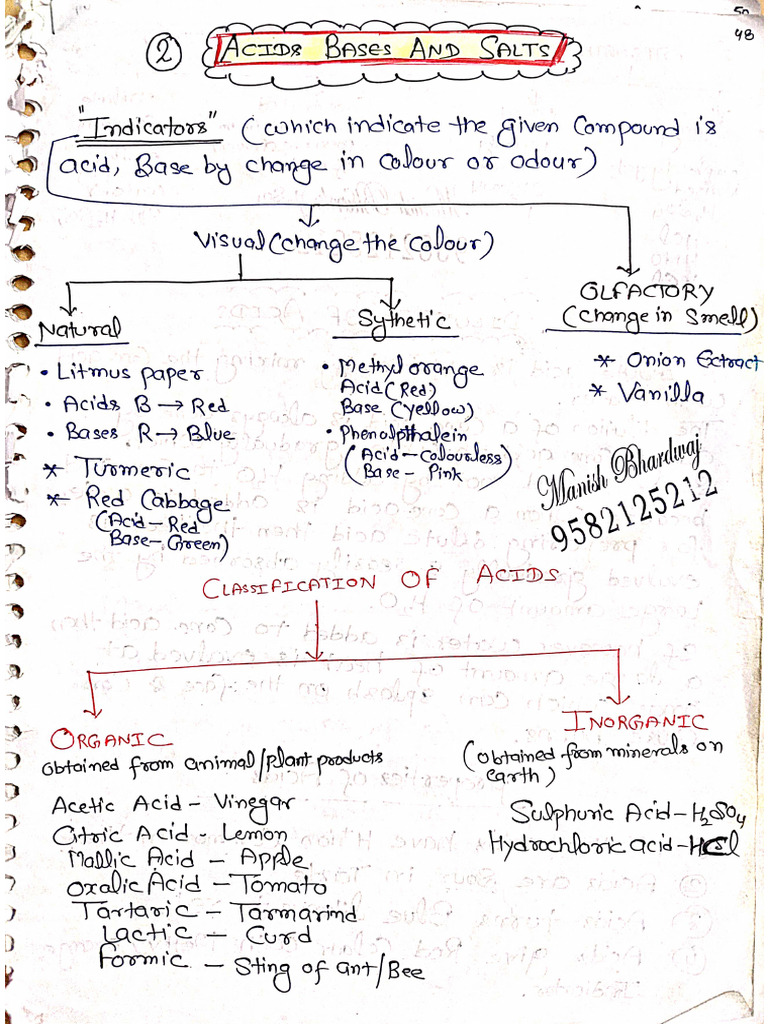 50
48
② ACIDS BASES AND SALTS
"Indicators" (which indicate the given Compound is
acid, Base by change in colour or odour)
Visual (change the colour)
OLFACTORY
(change in smell)
Natural
Sythetic
• Litmus paper
• Acids B → Red
• Bases R → Blue
* Turmeric
* Red Cabbage
(Acid - Red
Base - Green)
• Methyl orange
Acid (Red)
Base (Yellow)
• Phenolpthalein
(Acid - colourless)
Base - Pink
* Onion Extract
* Vanilla
Manish Bhardwaj
9582125212
CLASSIFICATION OF ACIDS
ORGANIC
obtained from animal/plant products
Acetic Acid - Vinegar
Citric Acid - Lemon
Mallic Acid - Apple
Oxalic Acid - Tomato
Tartaric - Tarmarind
Lactic - Curd
Formic - Sting of ant/Bee
INORGANIC
(obtained from minerals on
earth)
Sulphuric Acid - H₂SO₄
Hydrochloric acid - HCl